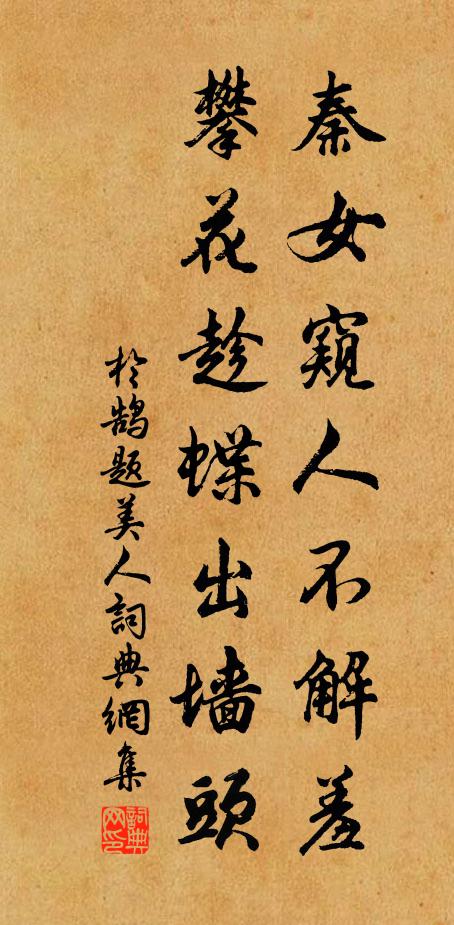 秦女窺人不解羞
攀花趁蝶出墙頭
於鵠題美人詞典網集
詞典网印